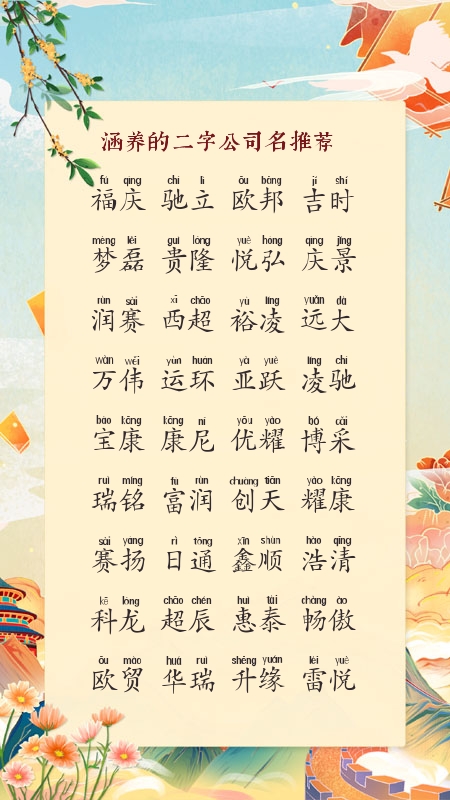 涵养的二字公司名推荐
fú qìng chí lì ōu bāng jí shí
福庆 驰立 欧邦 吉时
mèng lěi guì lóng yuè hóng qìng jǐng
梦磊 贵隆 悦弘 庆景
rùn sài xī chāo yù líng yuǎn dà
润赛 西超 裕凌 远大
wàn wěi yùn huán yà yuè líng chí
万伟 运环 亚跃 凌驰
bǎo kāng kāng ní yōu yào bó cǎi
宝康 康尼 优耀 博采
ruì míng fù rùn chuàng tiān yào kāng
瑞铭 富润 创天 耀康
sài yáng rì tōng xīn shùn hào qīng
赛扬 日通 鑫顺 浩清
kē lóng chāo chén huì tài chàng ào
科龙 超辰 惠泰 畅傲
ōu mào huá ruì shēng yuán léi yuè
欧贸 华瑞 升缘 雷悦